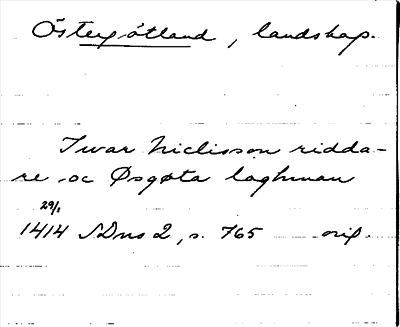 Östergötland, landskap.
Iwar Niclisson ridda-
re oc Øsgøta laghman
29/1
1414 SDns 2, s. 765 orig.